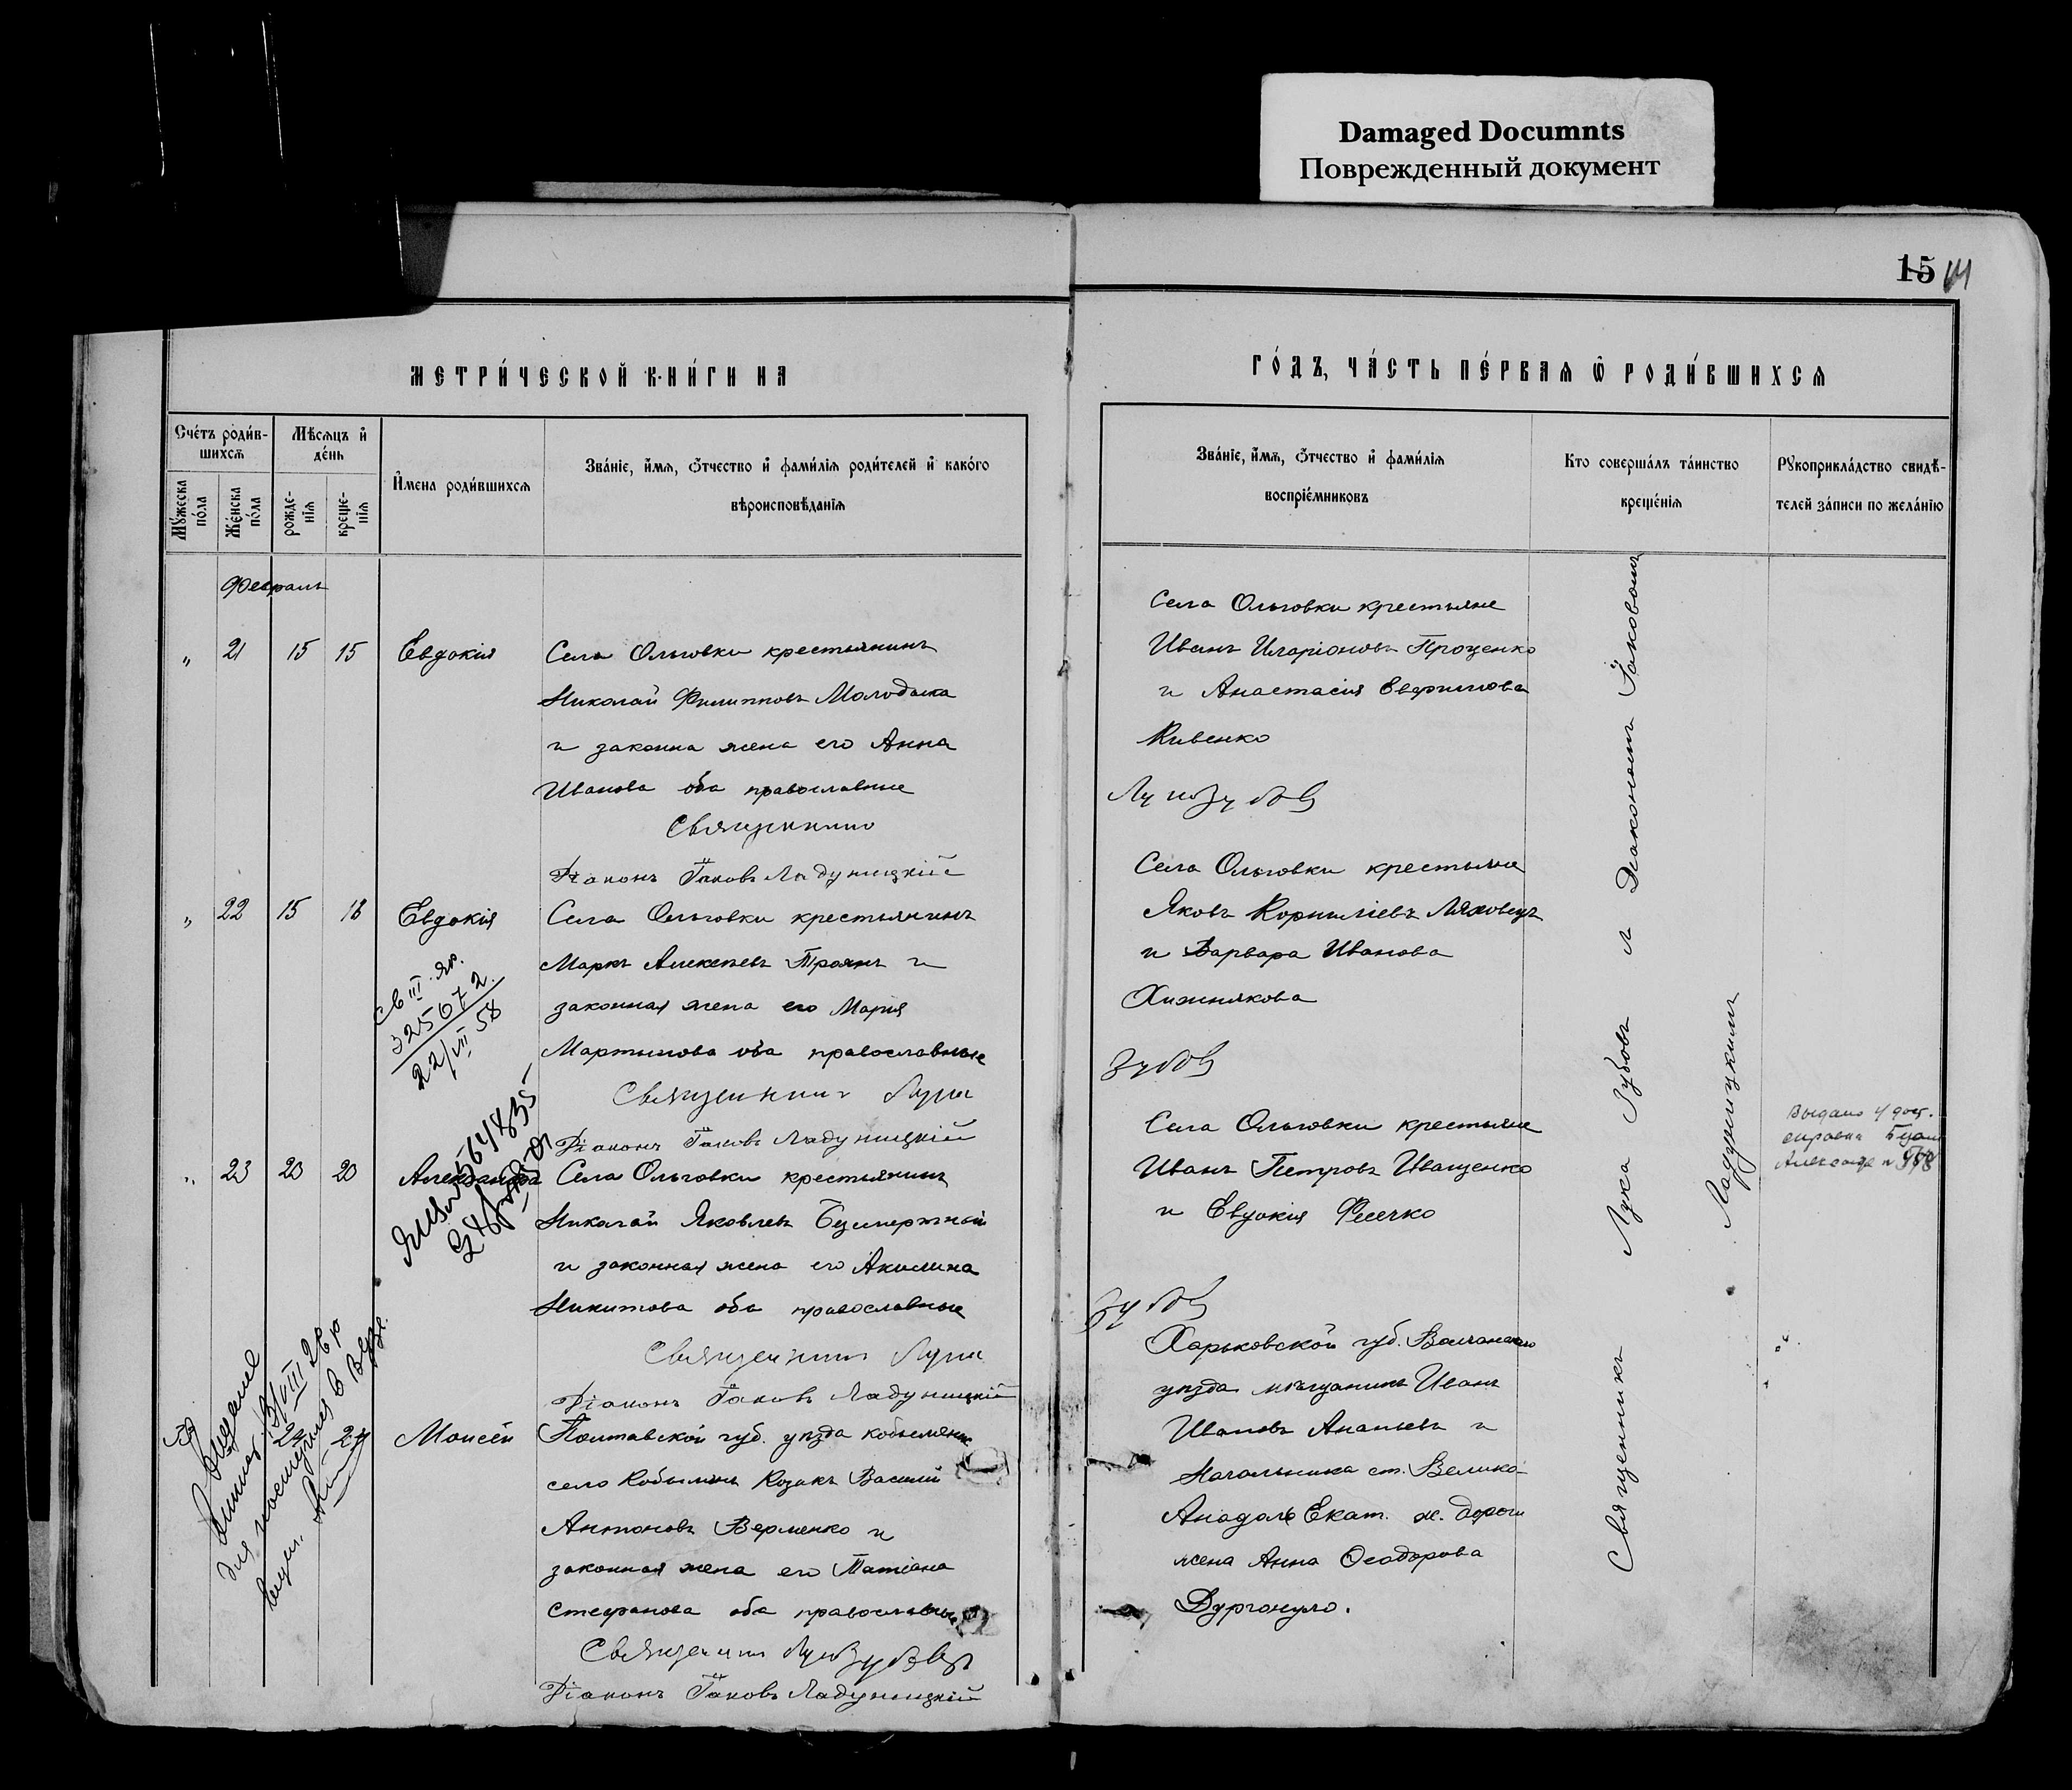 Damaged Documnts
Поврежденный документ
15 14
МЕТРИ́ЧЕСКОЙ КНИ́ГИ НА
ГО́ДЪ, ЧА́СТЬ ПЕ́РВАЯ Ѡ РОДИ́ВШИХСЯ
Сче́тъ роди́в-
шихся
Мѣсяцъ и
де́нь
Му́жеска по́ла
Же́нска по́ла
рожде-
нія
креще-
нія
И́мена роди́вшихся
Зва́ніе, и́мя, о́тчество и фами́лія роди́телей и како́го
вѣроисповѣ́данія
Зва́ніе, и́мя, о́тчество и фами́лія
воспріе́мниковъ
Кто соверша́лъ та́инство
креще́нія
Рукоприкла́дство свидѣ́-
телей за́писи по жела́нію
Февраль
" 21 15 15 Евдокія
Села Ольговки крестьянинъ
Николай Филипповъ Молодыка
и законна жена его Анна
Иванова оба православные
Священникъ
Діаконъ Іаковъ Ладуницкій
Села Ольговки крестьяне
Иванъ Иларіоновъ Проценко
и Анастасія Евфимова
Кивенко
Лука Зубовъ
" 22 15 18 Евдокія
Св III яр.
325072
22/VII 58
Села Ольговки крестьянинъ
Маркъ Алексѣевъ Троянъ и
законная жена его Марія
Мартынова оба православные
Священникъ Лука
Діаконъ Іаковъ Ладуницкій
Села Ольговки крестьяне
Яковъ Корниліевъ Ляховецъ
и Варвара Иванова
Хижнякова
Зубовъ
" 23 20 20 Александра
564835
Села Ольговки крестьянинъ
Николай Яковлевъ
и законная жена его Акилина
Никитова оба православные
Священникъ Лука
Діаконъ Іаковъ Ладуницкій
Села Ольговки крестьяне
Иванъ Петровъ Иващенко
и Евдокія Фесечко
Зубовъ
Выдано
справка
24 24 Моисей
Полтавской губ. уѣзда
село Козакъ Василій
Антоновъ Верменко и
законная жена его Татіана
Стефанова оба православные
Священникъ Лука Зубовъ
Діаконъ Іаковъ Ладуницкій
Харьковской губ. Волчанскаго
уѣзда мѣщанинъ Иванъ
Ивановъ Ананьевъ и
Начальника ст. Велико-
Анадоль Екат. ж. дороги
жена Анна Ѳеодорова
Священникъ Лука Зубовъ и Діакономъ Іаковомъ
Ладуницкимъ